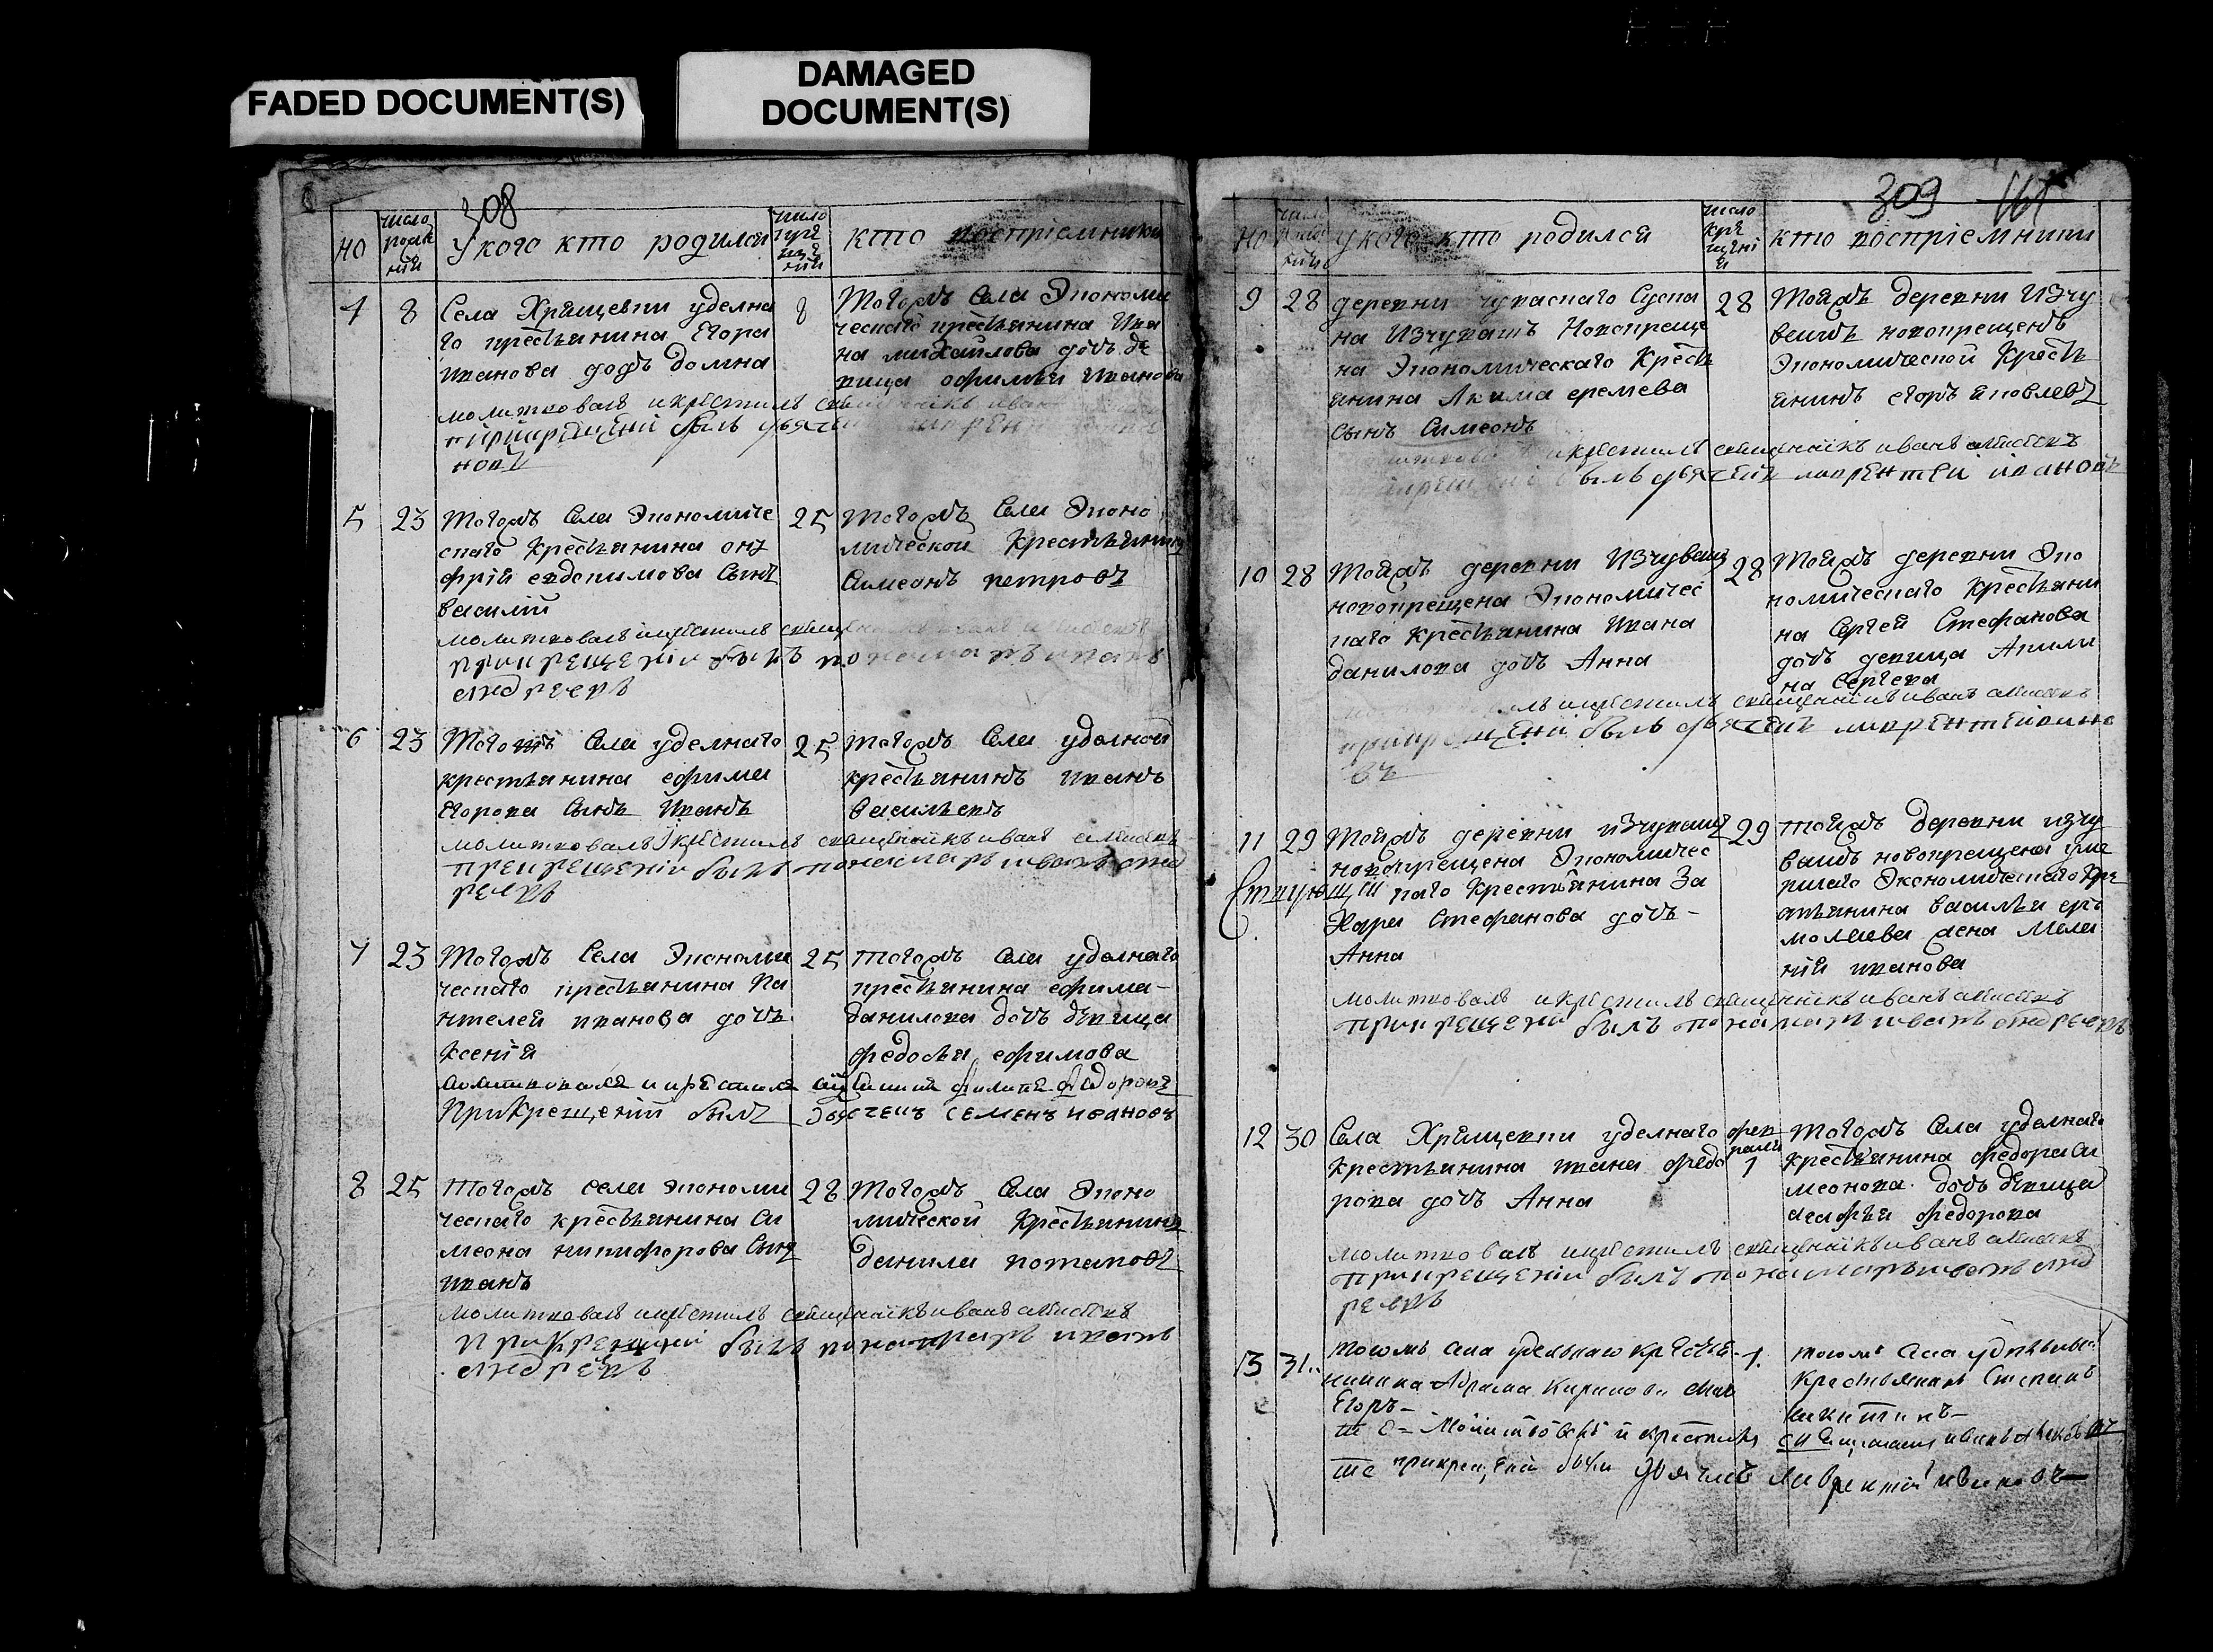 FADED DOCUMENT(S)
DAMAGED
DOCUMENT(S)
308
но
число
рожде
ній
У кого кто родился
число
кре
ще
ній
кто воспріемники
4
8
Села Хрящевки уделна
го крестьянина Егора
иванова дочь домна
8
Тогожъ Села Экономи
ческаго крестьянина Ива
на михайлова дочь де
вица офимья иванова
молитвовалъ и крестилъ священникъ иванъ
при крещеніи былъ дьячекъ лаврентей ива
новъ
5
23
Тогожъ Села Экономиче
скаго Крестьянина ону
фрій евдокимова Сынъ
василій
25
Тогожъ Села Эконо
мической Крестьянинъ
Симеонъ петровъ
молитвовалъ и крестилъ священникъ иванъ алексеевъ
при крещеніи былъ понамарь иванъ
андреевъ
6
23
Тогожъ Села уделнаго
крестьянина ефима
Егорова Сынъ Иванъ
25
Тогожъ Села уделной
крестьянинъ иванъ
васильевъ
молитвовалъ и крестилъ священникъ иванъ алексеевъ
при крещеніи былъ понамарь иванъ анд
реевъ
7
23
Тогожъ Села Экономи
ческаго крестьянина Па
нтелей иванова дочь
Ксенія
25
Тогожъ Села уделнаго
крестьянина ефима
данилова дочь девица
федосья ефимова
молитвовалъ и крестилъ священникъ филипъ федоровъ
При Крещеніи былъ дьячекъ семенъ ивановъ
8
25
Тогожъ села экономи
ческаго крестьянина Си
меона никифорова Сынъ
иванъ
28
Тогожъ Села Эконо
мической Крестьянинъ
данила потаповъ
молитвовалъ и крестилъ священникъ иванъ алексеевъ
при крещеніи былъ понамарь иванъ
андреевъ
309
но
число
рожде
ній
У кого кто родился
число
кре
щені
я
кто воспріемники
9
28
деревни чуваскаго Суска
на Изчувашъ Новокреще
на Экономическаго Кресть
янина Акима еремева
Сынъ Симеонъ
28
Тойжъ деревни Изчу
вашъ новокрещенъ
Экономической Кресть
янинъ егоръ яковлевъ
и крестилъ священникъ иванъ алексеевъ
при крещеніи былъ дьячекъ лаврентей ивановъ
10
28
Тойжъ деревни Изчувашъ
новокрещена Экономичес
каго Крестьянина Ивана
данилова дочь Анна
28
Тойжъ деревни Эко
номическаго Крестьяни
на Сергей Стефанова
дочь девица Акили
на Сергева
и крестилъ священникъ иванъ алексеевъ
при крещеніи былъ дьячекъ лаврентей ивано
въ
11
29
Тойжъ деревни изчувашъ
новокрещена Экономичес
каго Крестьянина За
хара Стефанова дочь
Анна
29
Тойжъ деревни изчу
вашъ новокрещена уме
ршаго Экономическаго Кре
стьянина василья ер
молаева жена Мела
нія иванова
молитвовалъ и крестилъ священникъ иванъ алексеевъ
при крещеніи былъ понамарь иванъ андреевъ
12
30
Села Хрящевки уделнаго
Крестьянина ивана федо
рова дочь Анна
фев
раля
1
Тогожъ Села уделнаго
Крестьянина федора Си
меонова дочь девица
агафья федорова
молитвовалъ и крестилъ священникъ иванъ алексеевъ
при крещеніи былъ понамарь иванъ анд
реевъ
13
31
тогожъ села уделнаго крестья
нина Абрама Кирилова сынъ
Егоръ
1
тогожъ села уделный
Крестьянинъ Степанъ
никитинъ
Молитвовалъ и крестилъ священникъ иванъ алексеевъ
при крещеніи былъ дьячекъ лаврентій ивановъ